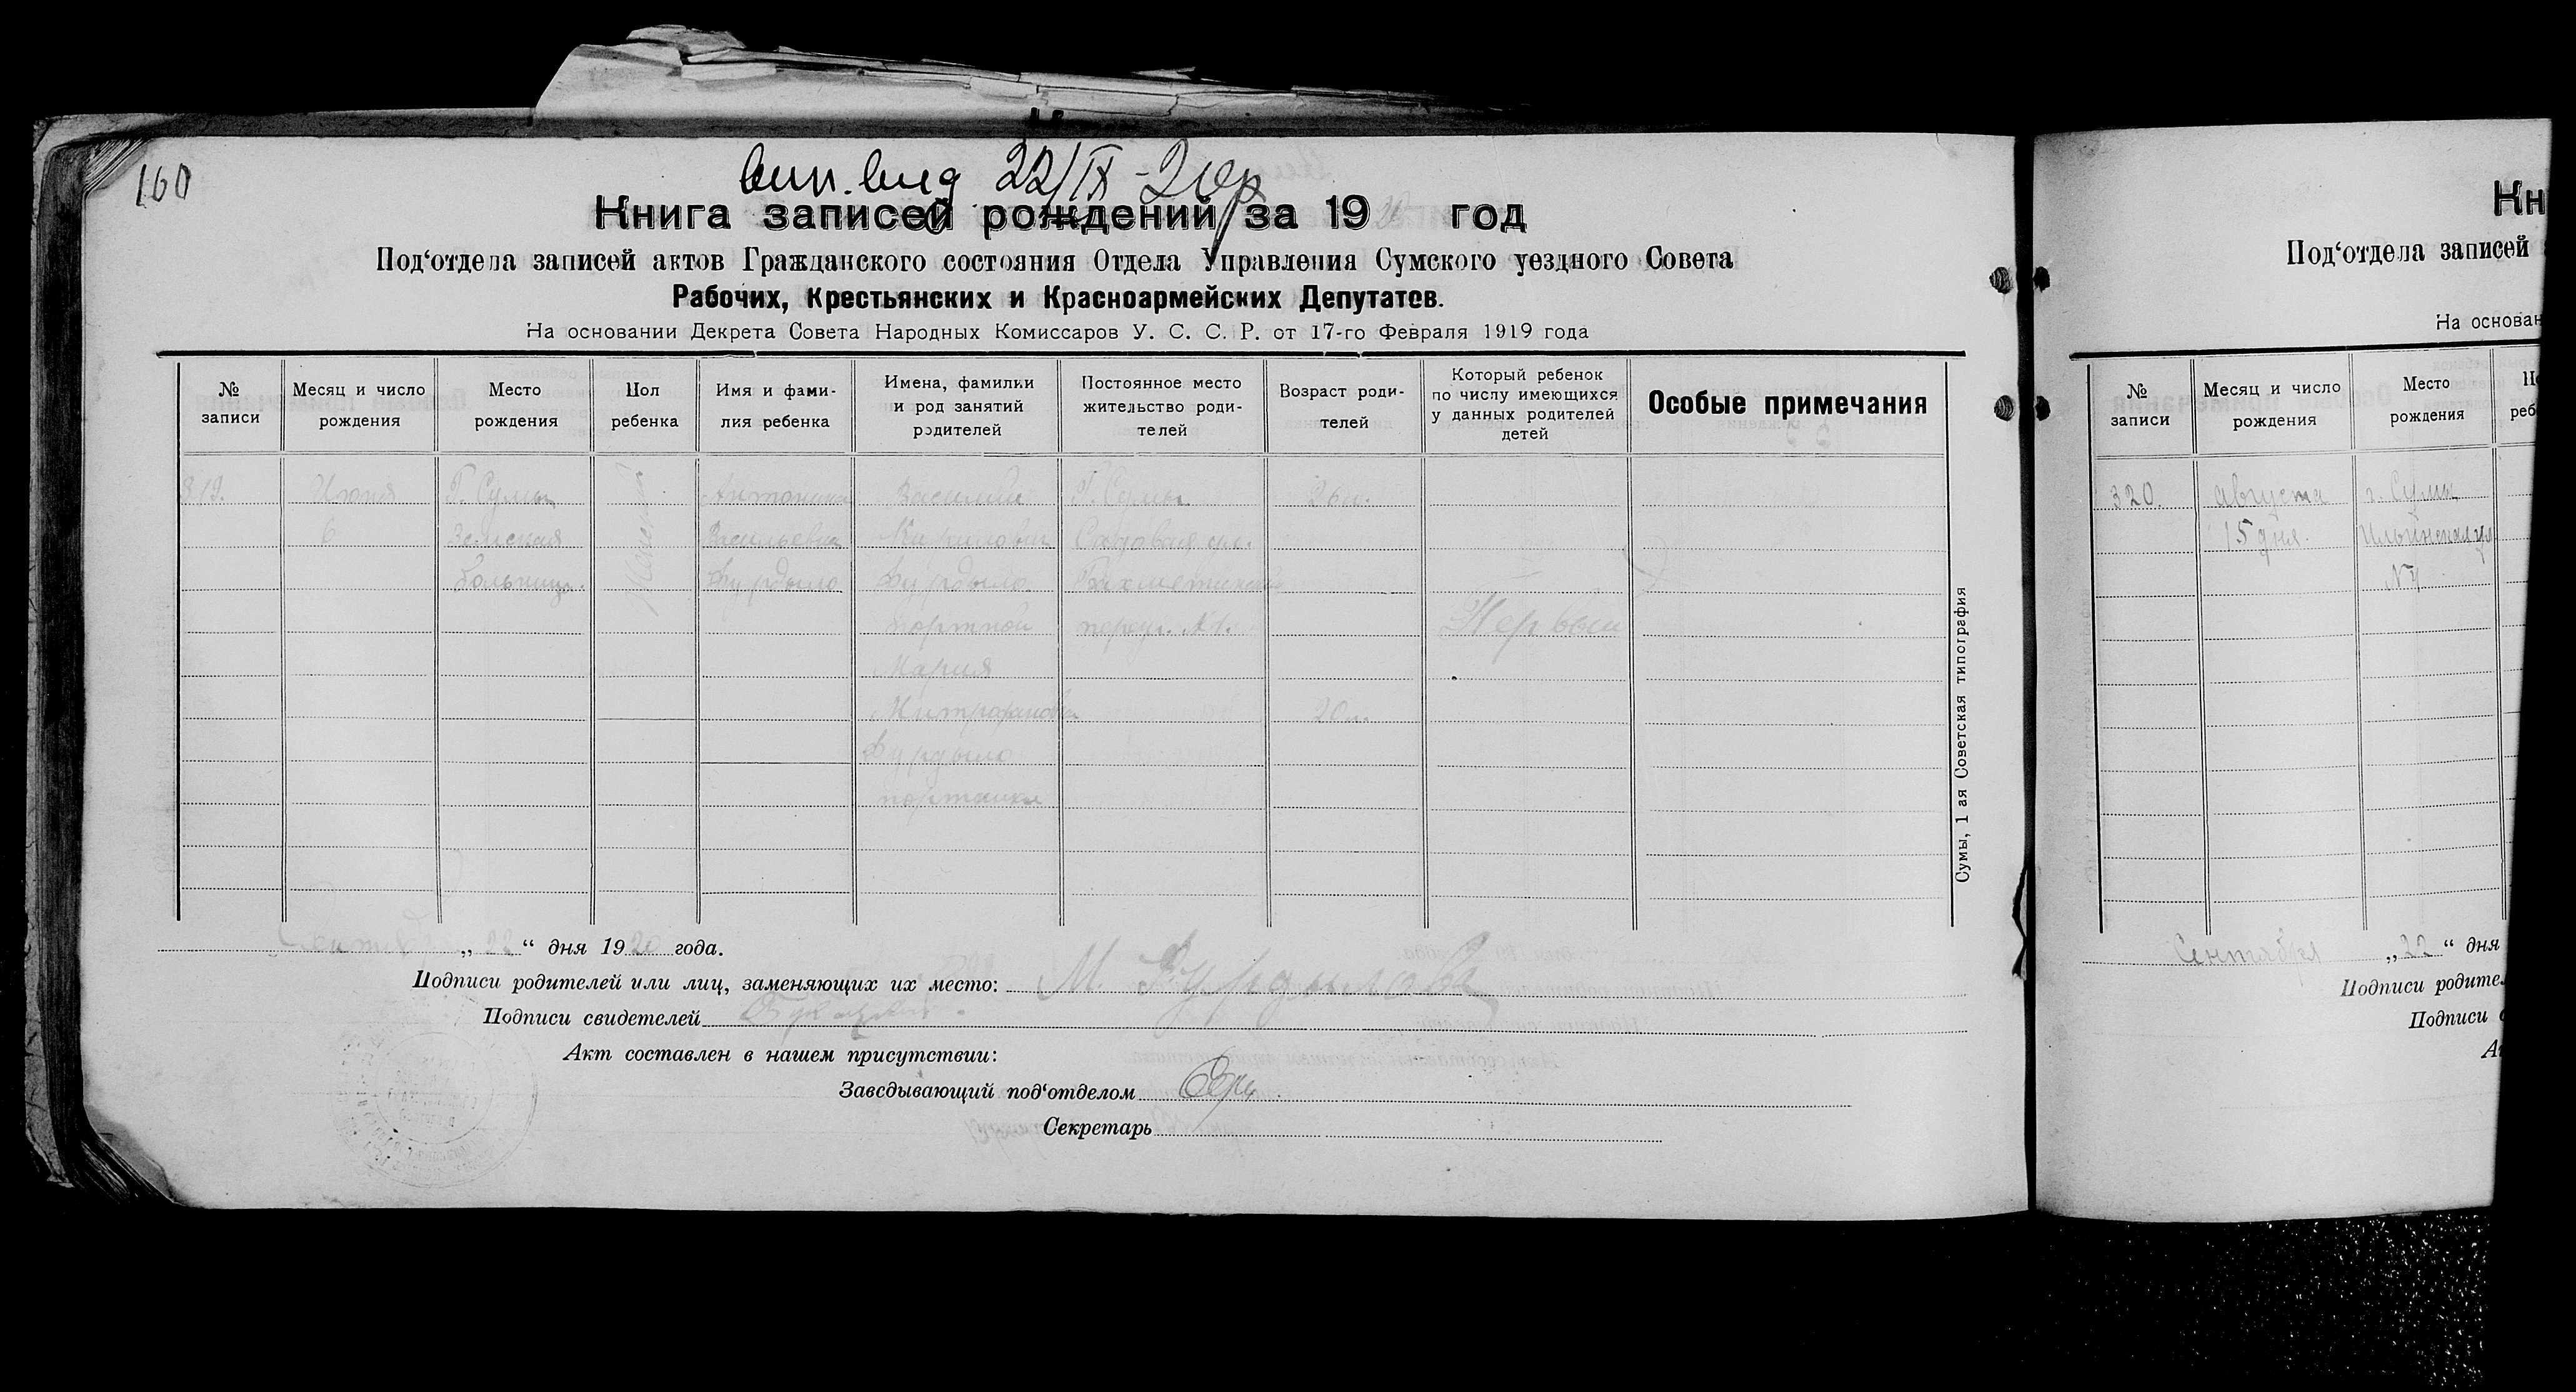 160
вып. вид 22/IX-20 р
Книга записей рождений за 1920 год
Под‘отдела записей актов Гражданского состояния Отдела Управления Сумского уездного Совета
Рабочих, Крестьянских и Красноармейских Депутатов.
На основании Декрета Совета Народных Комиссаров У. С. С. Р. от 17-го Февраля 1919 года
№ записи
Месяц и число рождения
Место рождения
Пол ребенка
Имя и фами-
лия ребенка
Имена, фамилии
и род занятий
родителей
Постоянное место
жительство роди-
телей
Возраст роди-
телей
Который ребенок
по числу имеющихся
у данных родителей
детей
Особые примечания
319.
Июня
6
Г. Сумы
Земская
больница.
Женский
Антонина
Васильевна
Бурдыло
Василий
Кирилович
Бурдыло
портной
Мария
Митрофановна
Бурдыло
портниха
Г. Сумы
Садовая ул.
переул. №1.
26 л.
20 л.
Первый
Сумы, 1 ая Советская типография
Сентября „22“ дня 1920 года.
Подписи родителей или лиц, заменяющих их место: М. Бурдылова
Подписи свидетелей
Акт составлен в нашем присутствии:
Заведывающий под‘отделом
Секретарь
Кн
Под‘отдела записей
На основан
№ записи
Месяц и число рождения
Место рождения
По
реб
320.
августа
15 дня.
г. Сумы
Ильинская ул
№4
Сентября „22“ дня
Подписи родите
Подписи с
Ак